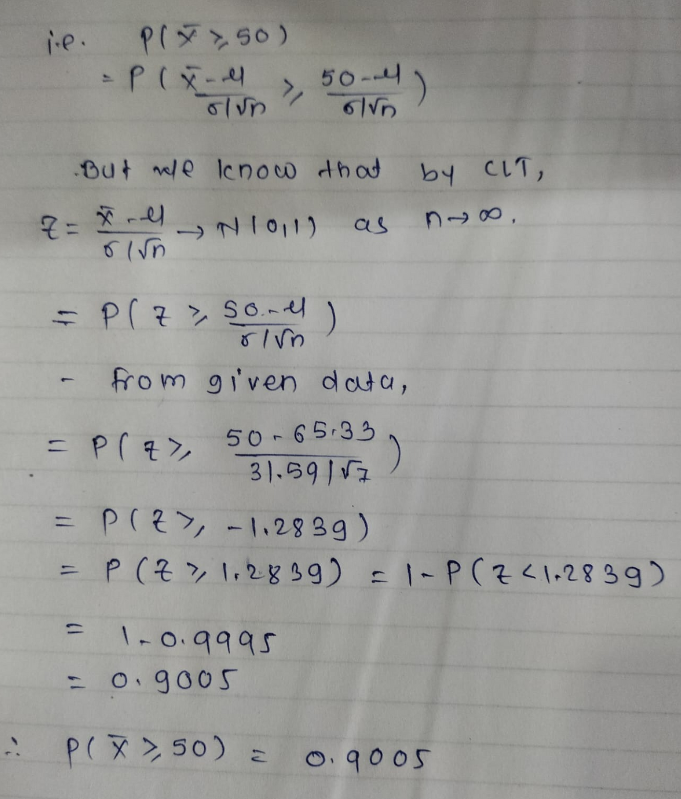 i.e. P(x̄ ≥ 50)
= P( x̄-μ / σ/√n ≥ 50-μ / σ/√n )
But we know that by CLT,
Z = x̄-μ / σ/√n → N(0,1) as n→∞.
= P( Z ≥ 50-μ / σ/√n )
- from given data,
= P( Z ≥ 50-65.33 / 31.59/√7 )
= P(Z ≥ -1.2839)
= P(Z ≥ 1.2839) = 1-P(Z<1.2839)
= 1-0.9995
= 0.9005
∴ P(x̄ ≥ 50) = 0.9005